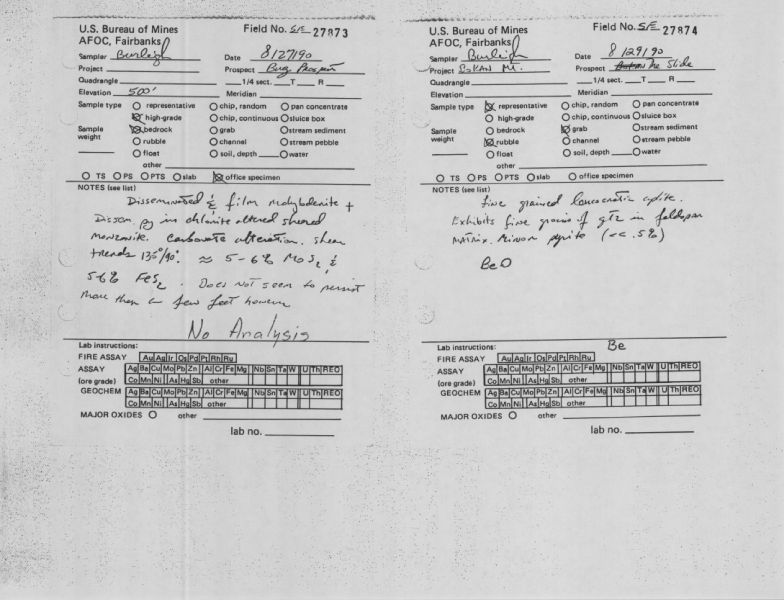 U.S. Bureau of Mines
AFOC, Fairbanks
Field No. S/E 27873
Sampler Burleigh
Date 8/27/90
Project
Prospect Bug Prospect
Quadrangle 1/4 sect. T R
Elevation 500' Meridian
Sample type representative chip, random pan concentrate
high-grade chip, continuous sluice box
Sample weight bedrock grab stream sediment
rubble channel stream pebble
float soil, depth water
other
TS PS PTS slab office specimen
NOTES (see list)
Disseminated & film molybdenite +
Dissem. py in chlorite altered sheared
monzonite. carbonate alteration. shear
trends 135°/90°. ≈ 5-6% MoS2 &
5-6% FeS2. Does not seem to persist
more than a few feet however
No Analysis
Lab instructions:
FIRE ASSAY Au Ag Ir Os Pd Pt Rh Ru
ASSAY Ag Ba Cu Mo Pb Zn Al Cr Fe Mg Nb Sn Ta W U Th REO
(ore grade) Co Mn Ni As Hg Sb other
GEOCHEM Ag Ba Cu Mo Pb Zn Al Cr Fe Mg Nb Sn Ta W U Th REO
Co Mn Ni As Hg Sb other
MAJOR OXIDES other
lab no.
U.S. Bureau of Mines
AFOC, Fairbanks
Field No. S/E 27874
Sampler Burleigh
Date 8/29/90
Project Bokan Mt.
Prospect The Slide
Quadrangle 1/4 sect. T R
Elevation Meridian
Sample type representative chip, random pan concentrate
high-grade chip, continuous sluice box
Sample weight bedrock grab stream sediment
rubble channel stream pebble
float soil, depth water
other
TS PS PTS slab office specimen
NOTES (see list)
fine grained leucocratic aplite.
Exhibits fine grains of qtz in feldspar
matrix. Minor pyrite (<< .5%)
BeO
Be
Lab instructions:
FIRE ASSAY Au Ag Ir Os Pd Pt Rh Ru
ASSAY Ag Ba Cu Mo Pb Zn Al Cr Fe Mg Nb Sn Ta W U Th REO
(ore grade) Co Mn Ni As Hg Sb other
GEOCHEM Ag Ba Cu Mo Pb Zn Al Cr Fe Mg Nb Sn Ta W U Th REO
Co Mn Ni As Hg Sb other
MAJOR OXIDES other
lab no.